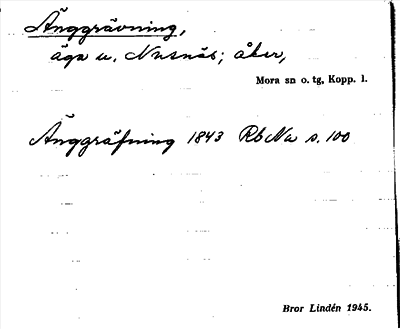 Änggrävning,
äga u. Nusnäs; åker,
Mora sn o. tg, Kopp. l.
Änggräfning 1843 RbNa s. 100
Bror Lindén 1945.